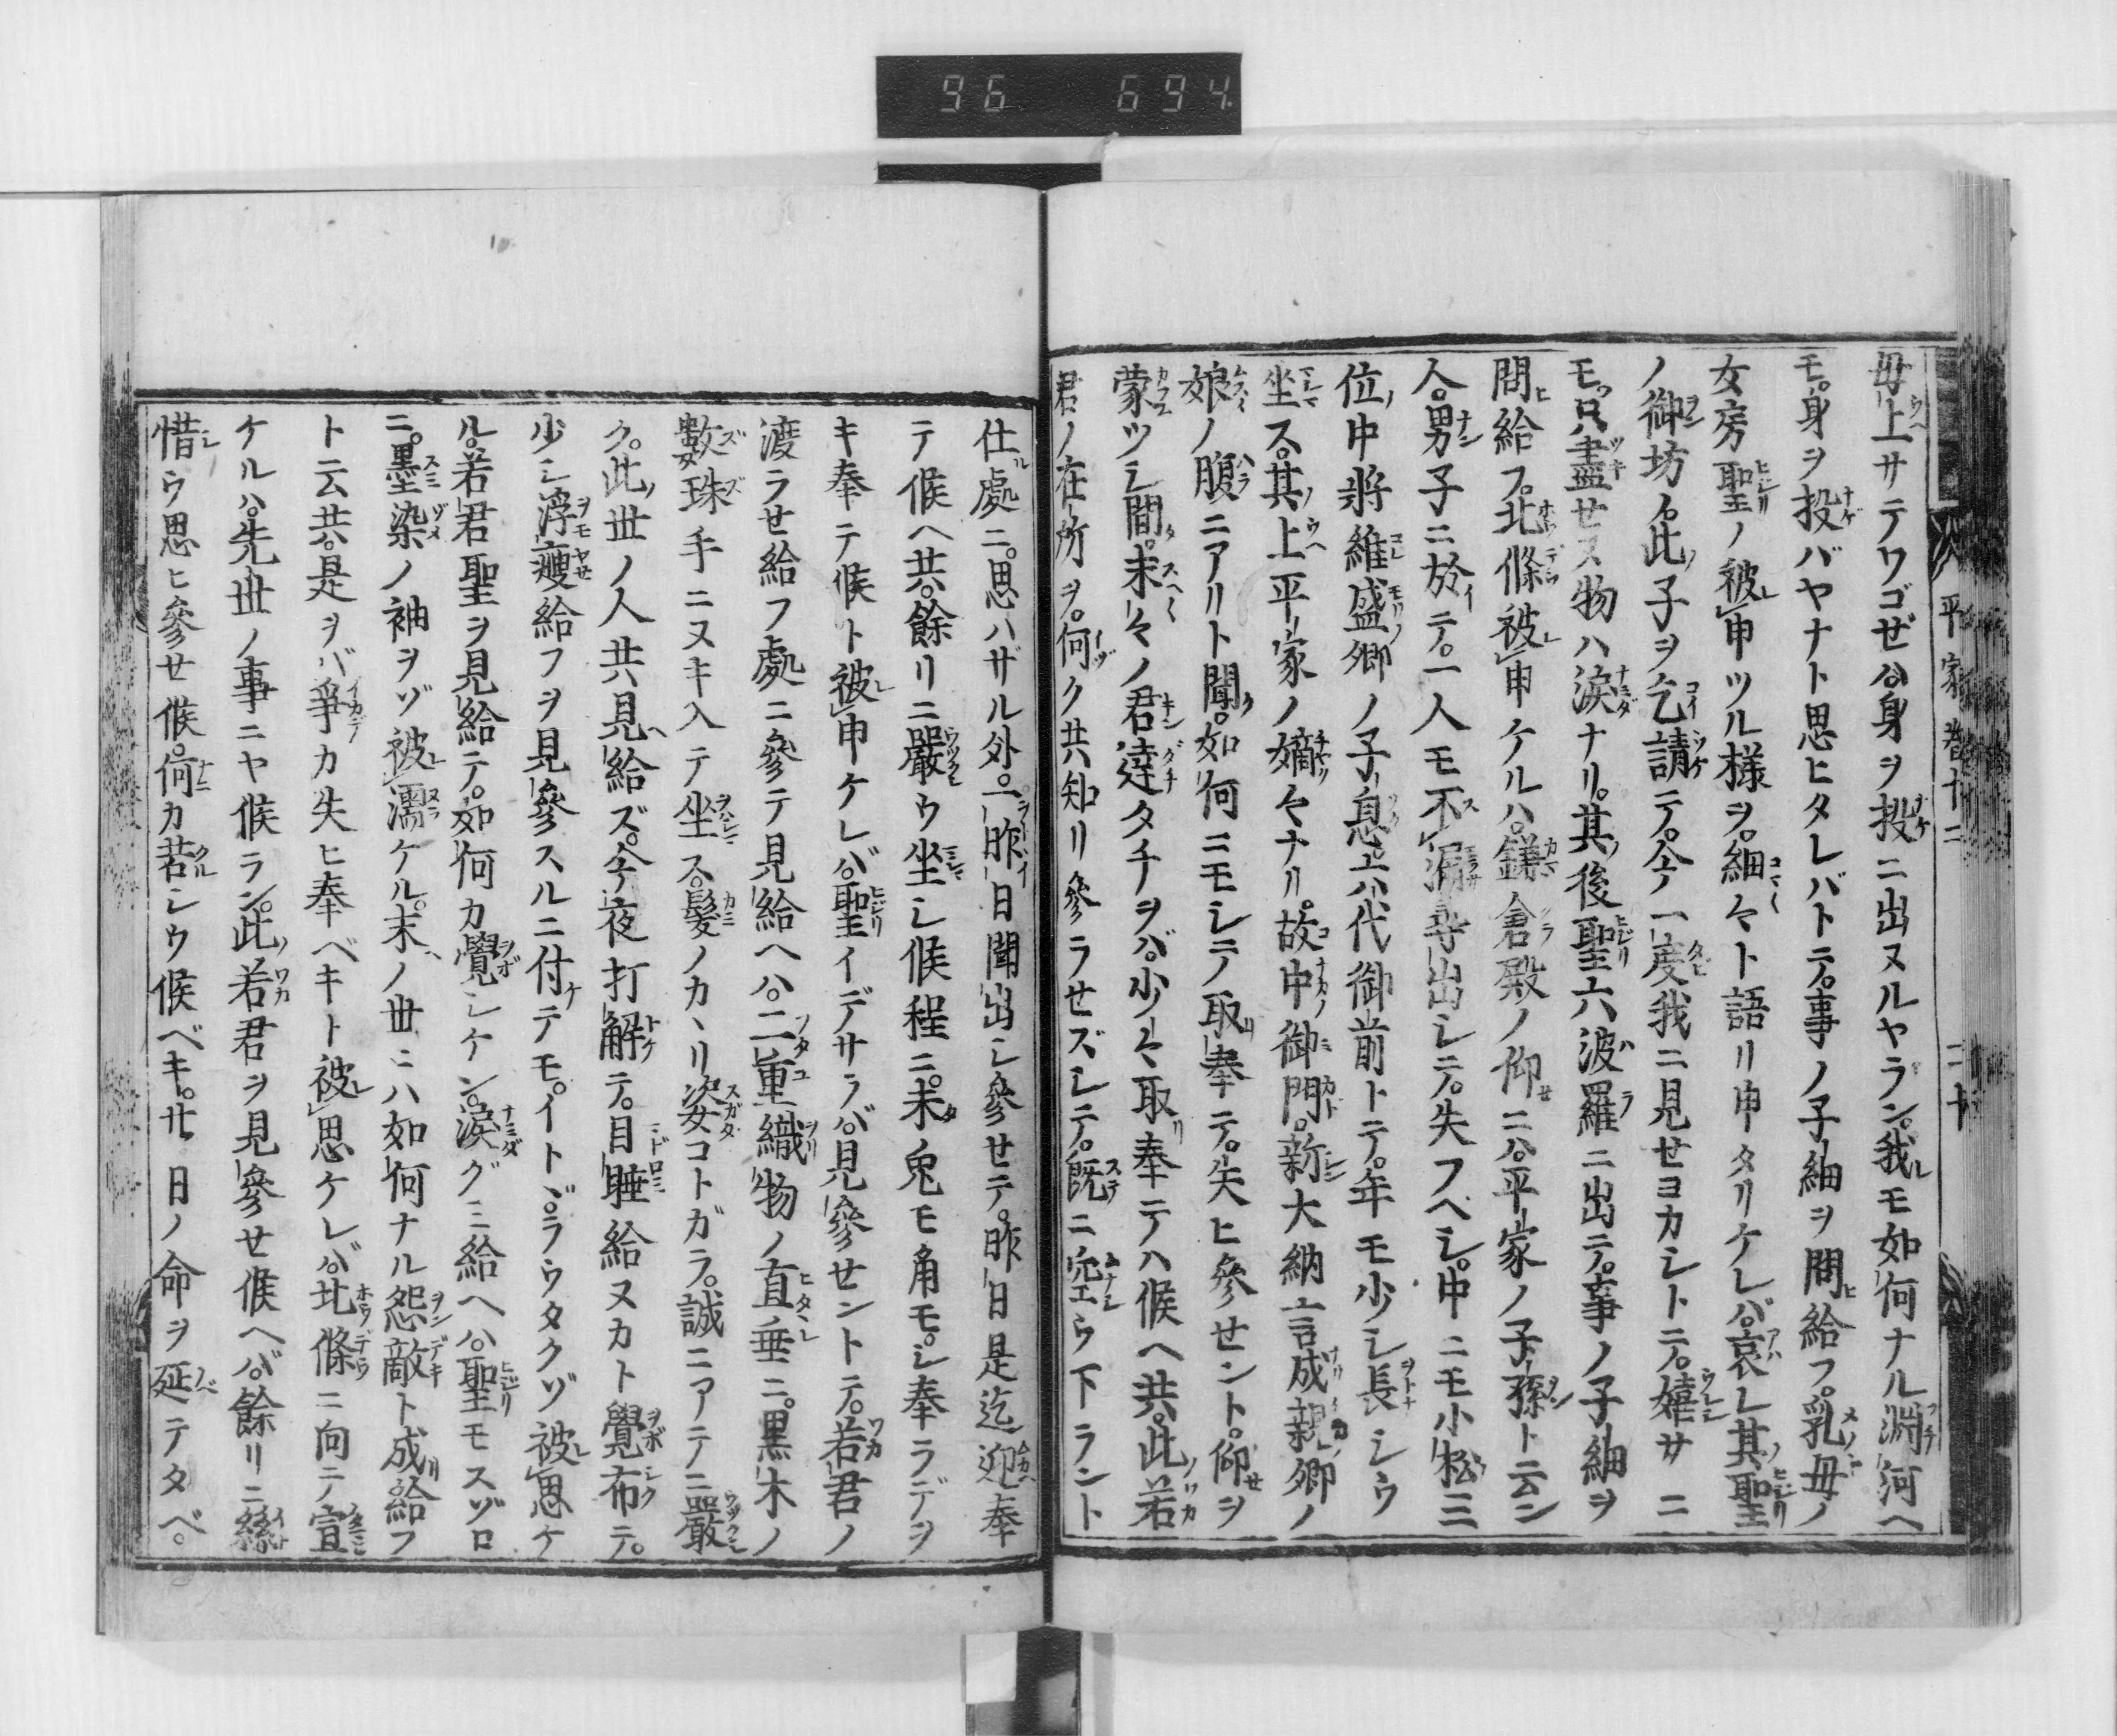 96 694
平家巻十二 二十
母上サテワゴゼハ。身ヲ投ニ出ヌルヤラン。我モ如何ナル淵河ヘ
モ。身ヲ投バヤナト思ヒタレバトテ。事ノ子細ヲ問給フ。乳母ノ
女房聖ノ被申ツル様ヲ。細々ト語リ申タリケレバ。哀レ其聖
ノ御坊ノ。此子ヲ乞請テ。今一度我ニ見セヨカシトテ。嬉サニ
モ。只盡セヌ物ハ涙ナリ。其後聖六波羅ニ出テ。事ノ子細ヲ
問給フ。北條被申ケルハ。鎌倉殿ノ仰ニハ。平家ノ子孫ト云ン
人。男子ニ於テ。一人モ不漏尋出シテ。失フヘシ。中ニモ小松三
位中将維盛卿ノ子息。六代御前トテ。年モ少シ長シウ
坐ス。其上平家ノ嫡々ナリ。故中御門。新大納言成親卿ノ
娘ノ腹ニアリト聞。如何ニモシテ取奉テ。失ヒ參セント。仰ヲ
蒙ツシ間。末々ノ君達タチヲバ。少々取奉テハ候ヘ共。此若
君ノ在所ヲ。何ク共知リ參ラセズシテ。既ニ空ウ下ラント
仕處ニ。思ハザル外。一昨日聞出シ參セテ。昨日是迄迎奉
テ候ヘ共。餘リニ嚴ウ坐シ候程ニ。未兎モ角モ。シ奉ラデヲ
キ奉テ候ト被申ケレバ。聖イデサラバ。見參セントテ。若君ノ
渡ラセ給フ處ニ參テ見給ヘハ。二重織物ノ直垂ニ。黒木ノ
數珠手ニヌキ入テ坐ス。髪ノカヽリ姿コトガラ。誠ニアテニ嚴
ク。此世ノ人共見給ズ。今夜打解テ。目睡給ヌカト覺布テ。
少シ浮痩給フヲ見參スルニ付テモ。イトヾ。ラウタクゾ被思ケ
ル。若君聖ヲ見給テ。如何カ覺シケン。涙グミ給ヘハ。聖モスゾロ
ニ。墨染ノ袖ヲゾ被濡ケル。末ノ世ニハ如何ナル怨敵ト成給フ
ト云共。是ヲバ爭カ失ヒ奉ベキト被思ケレバ。北條ニ向テ宣
ケルハ。先世ノ事ニヤ候ラン。此若君ヲ見參セ候ヘバ。餘リニ絲
惜ウ思ヒ參セ候。何カ苦シウ候ベキ。廿日ノ命ヲ延テタベ。